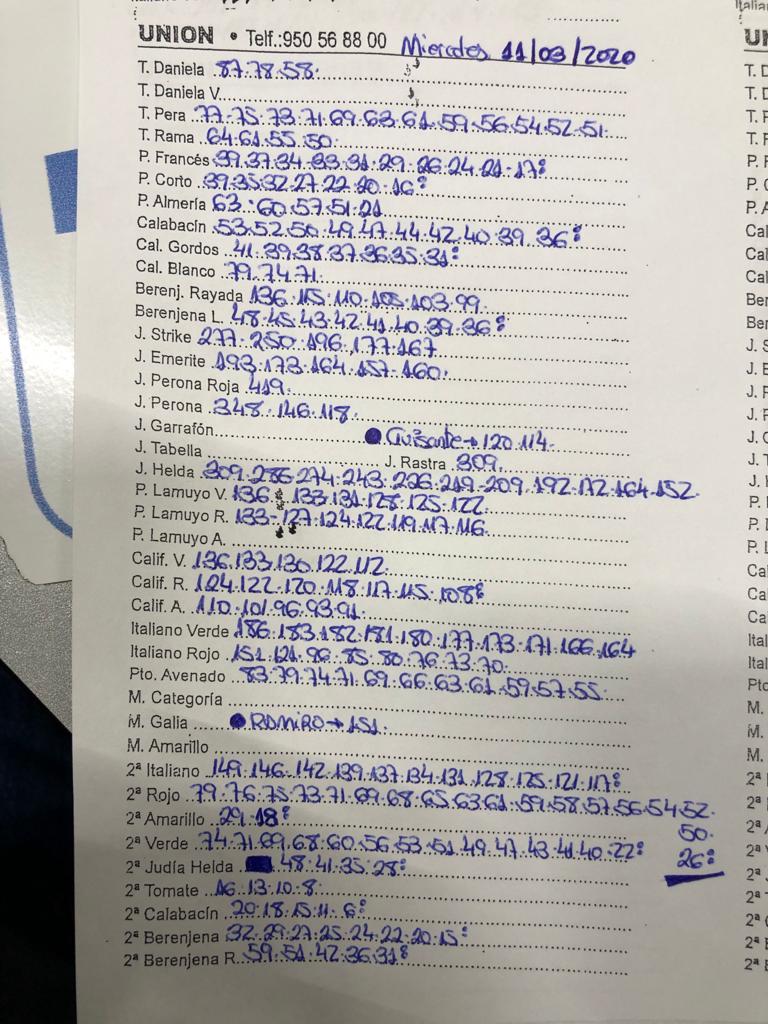 UNION • Telf.:950 56 88 00 Miercoles 11/03/2020
T. Daniela 87.78.58.
T. Daniela V.
T. Pera 77-75.73.71.69.63.61.59.56.54.52.51.
T. Rama 64.61.55.50.
P. Francés 39.37.34.33.31.29.26.24.21-17:
P. Corto 39.35.32.27.22.20.16:
P. Almería 63.:60.57.51.21
Calabacín 53.52.50.49.47.44.42.40.39.36:
Cal. Gordos 41.39.38.37.36.35.31:
Cal. Blanco 79.74.71.
Berenj. Rayada 136.115.110.105.103.99.
Berenjena L. 48.45.43.42.41.40.39.36:
J. Strike 277.250.196.177.167
J. Emerite 193.173.164.157.160.
J. Perona Roja 419.
J. Perona 348.146.118.
J. Garrafón ● Guisante→120.114.
J. Tabella J. Rastra 309.
J. Helda 309.286.274.243.226.219.209.192.172.164.152.
P. Lamuyo V. 136.133.131.128.125.122.
P. Lamuyo R. 133-127.124.122.119.117.116.
P. Lamuyo A.
Calif. V. 136.133.130.122.112.
Calif. R. 124.122.120.118.117.115.108:
Calif. A. 110.101.96.93.91.
Italiano Verde 186.183.182.181.180.177.173.171.166.164
Italiano Rojo 151.121.96.85.80.76.73.70.
Pto. Avenado 83.79.74.71.69.66.63.61.59.57.55.
M. Categoría
M. Galia ● RAMIRO→151.
M. Amarillo
2ª Italiano 149.146.142.139.137.134.131.128.125.121.117:
2ª Rojo 79.76.75.73.71.69.68.65.63.61.59.58.57.56.54.52.
50.
26:
2ª Amarillo 29.18:
2ª Verde 74.71.69.68.60.56.53.51.49.47.43.41.40.22:
2ª Judía Helda 48.41.35.28:
2ª Tomate 16.13.10.8.
2ª Calabacín 20.18.15.11.6:
2ª Berenjena 32.29.27.25.24.22.20.15:
2ª Berenjena R. 59.51.42.36.31: